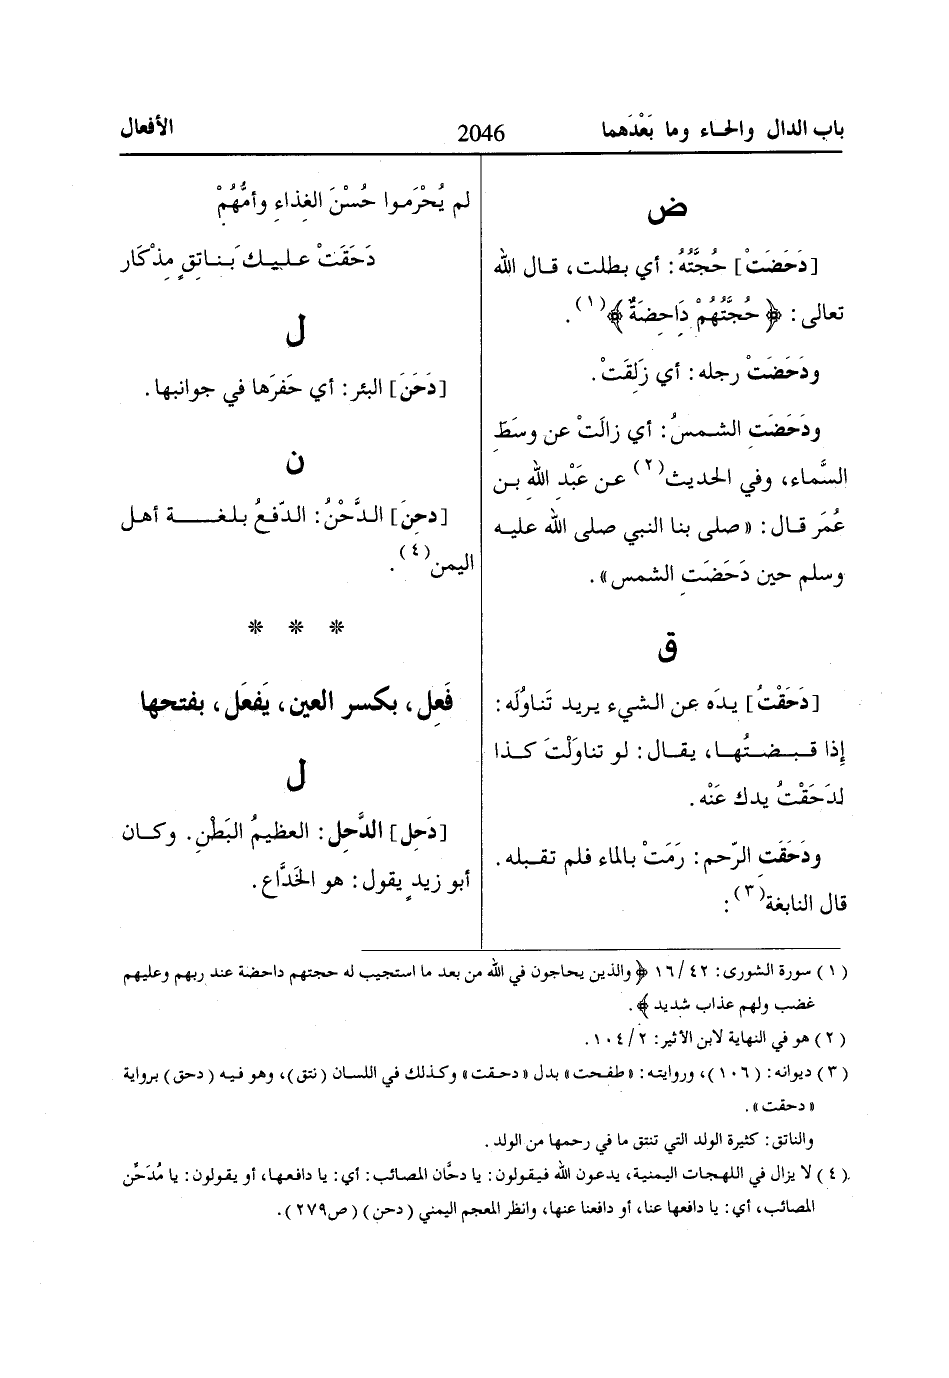 باب الدال والحاء وما بَعْدَهما
2046
الأفعال
ض
[دَحَضَتْ] حُجَّتُهُ: أي بطلت، قال الله
تعالى: ﴿حُجَّتُهُمْ دَاحِضَةٌ﴾(١).
ودَحَضَتْ رجله: أي زَلِقَتْ.
ودَحَضَت الشمسُ: أي زالَتْ عن وسَطِ
السَّماء، وفي الحديث(٢) عن عَبْدِ الله بن
عُمَر قال: «صلى بنا النبي صلى الله عليه
وسلم حين دَحَضَتِ الشمس».
ق
[دَحَقْتُ] يدَه عن الشيء يريد تَناوُلَه:
إِذا قبضتُها، يقال: لو تناوَلْتَ كذا
لدَحَقْتُ يدك عَنْه.
ودَحَقَتِ الرّحم: رَمَتْ بالماء فلم تقبله.
قال النابغة(٣):
لم يُحْرَموا حُسْنَ الغِذاءِ وأمُّهُمْ
دَحَقَتْ عليك بَناتِقٍ مِذْكَار
ل
[دَحَنَ] البئر: أي حَفرَها في جوانبها.
ن
[دحِنَ] الدَّحْنُ: الدّفعُ بلغة أهل
اليمن(٤).
* * *
فَعِل، بكسر العين، يَفعَل، بفتحها
ل
[دَحِل] الدَّحِل: العظيمُ البَطْنِ. وكان
أبو زيدٍ يقول: هو الخَدَّاع.
(١) سورة الشورى: ٤٢/ ١٦ ﴿والذين يحاجون في الله من بعد ما استجيب له حجتهم داحضة عند ربهم وعليهم
غضب ولهم عذاب شديد﴾.
(٢) هو في النهاية لابن الأثير: ٢/ ١٠٤.
(٣) ديوانه: (١٠٦)، وروايته: «طفحت» بدل «دحقت» وكذلك في اللسان (نتق)، وهو فيه (دحق) برواية
«دحقت».
والناتق: كثيرة الولد التي تنتق ما في رحمها من الولد.
(٤) لا يزال في اللهجات اليمنية، يدعون الله فيقولون: يا دحَّان المصائب: أي: يا دافعها، أو يقولون: يا مُدَحِّن
المصائب، أي: يا دافعها عنا، أو دافعنا عنها، وانظر المعجم اليمني (دحن) (ص٢٧٩).